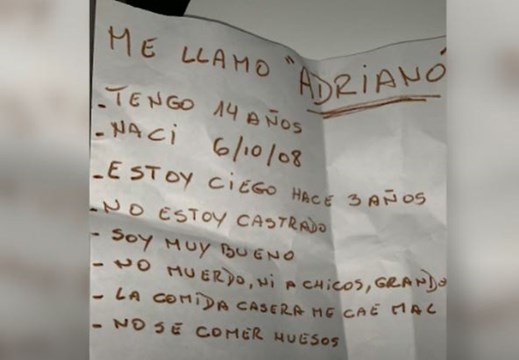 ME LLAMO "ADRIANO"
-TENGO 14 AÑOS
-NACI 6/10/08
-ESTOY CIEGO HACE 3 AÑOS
-NO ESTOY CASTRADO
- SOY MUY BUENO
- NO MUERDO, NI A CHICOS, GRANDO
- LA COMIDA CASERA ME CAE MAL
- NO SE COMER HUESOS